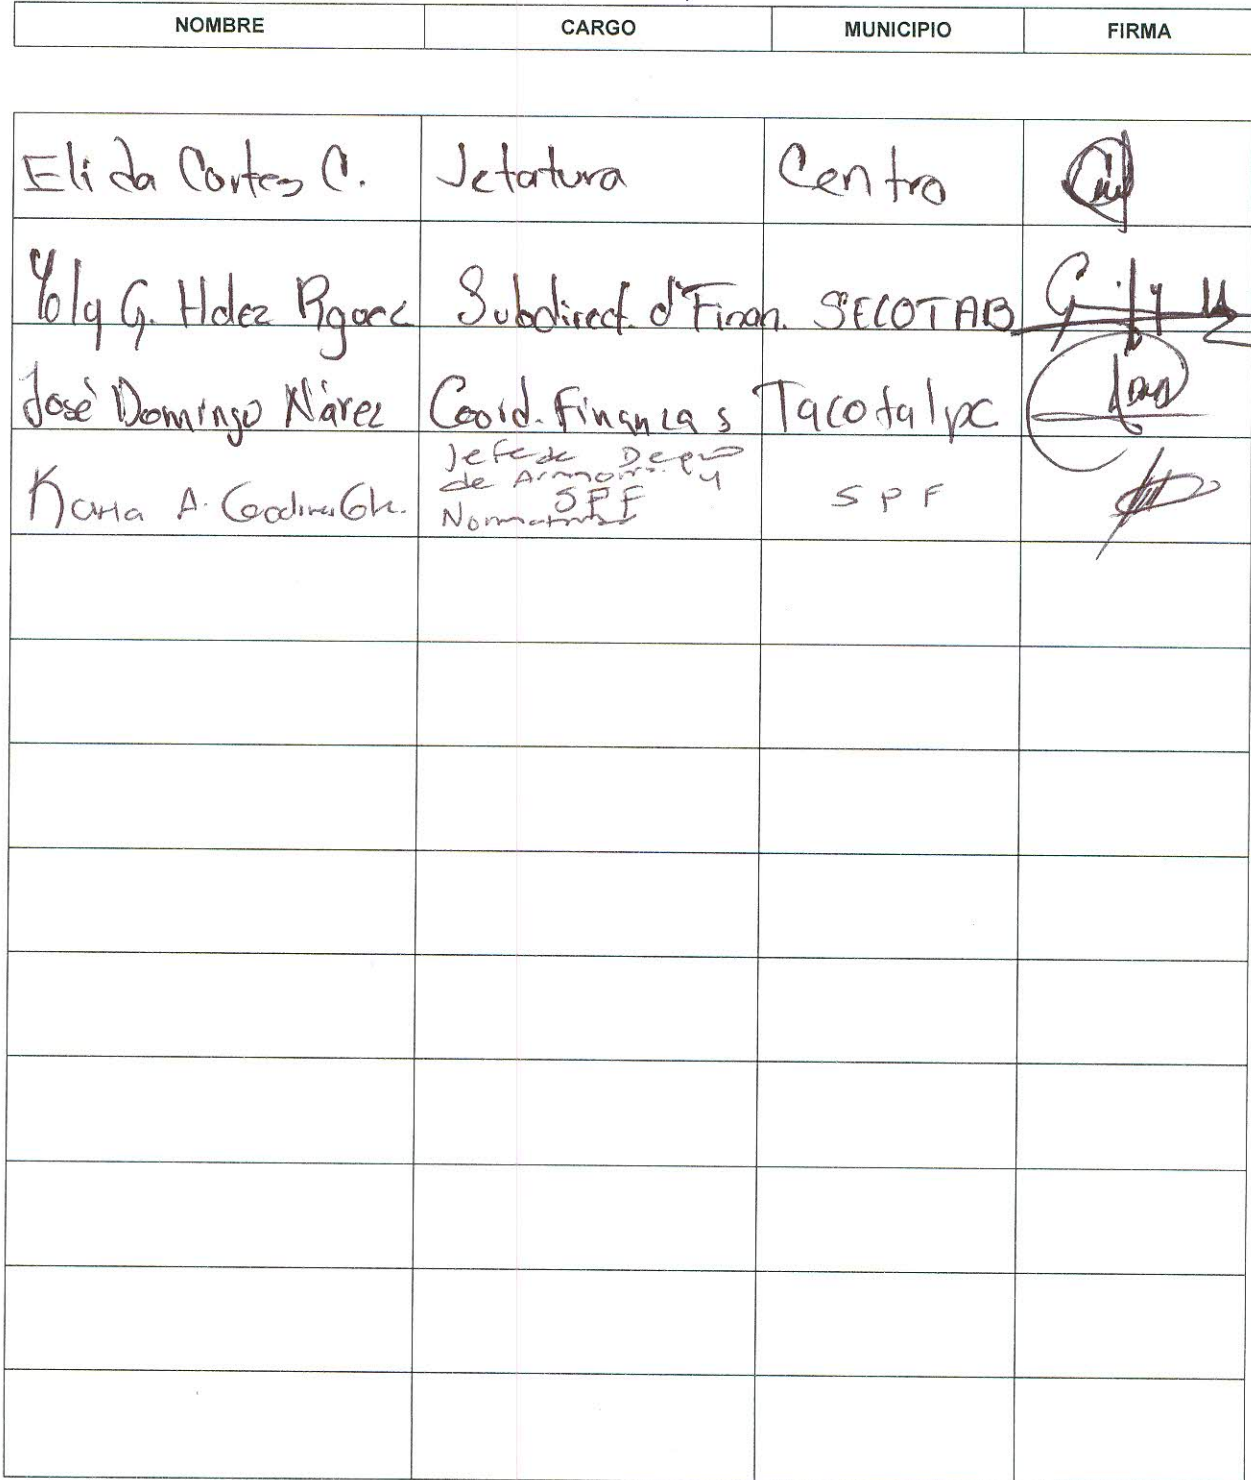 NOMBRE CARGO MUNICIPIO FIRMA
Elida Cortes C. Jefatura Centro
G. Hdez Subdirect. d' Finan. SECOTAB
José Domingo Nárez Coord. Finanzas Tacotalpa
Karla A. SPF
Jefe de Depto
de Armoniz. y
SPF